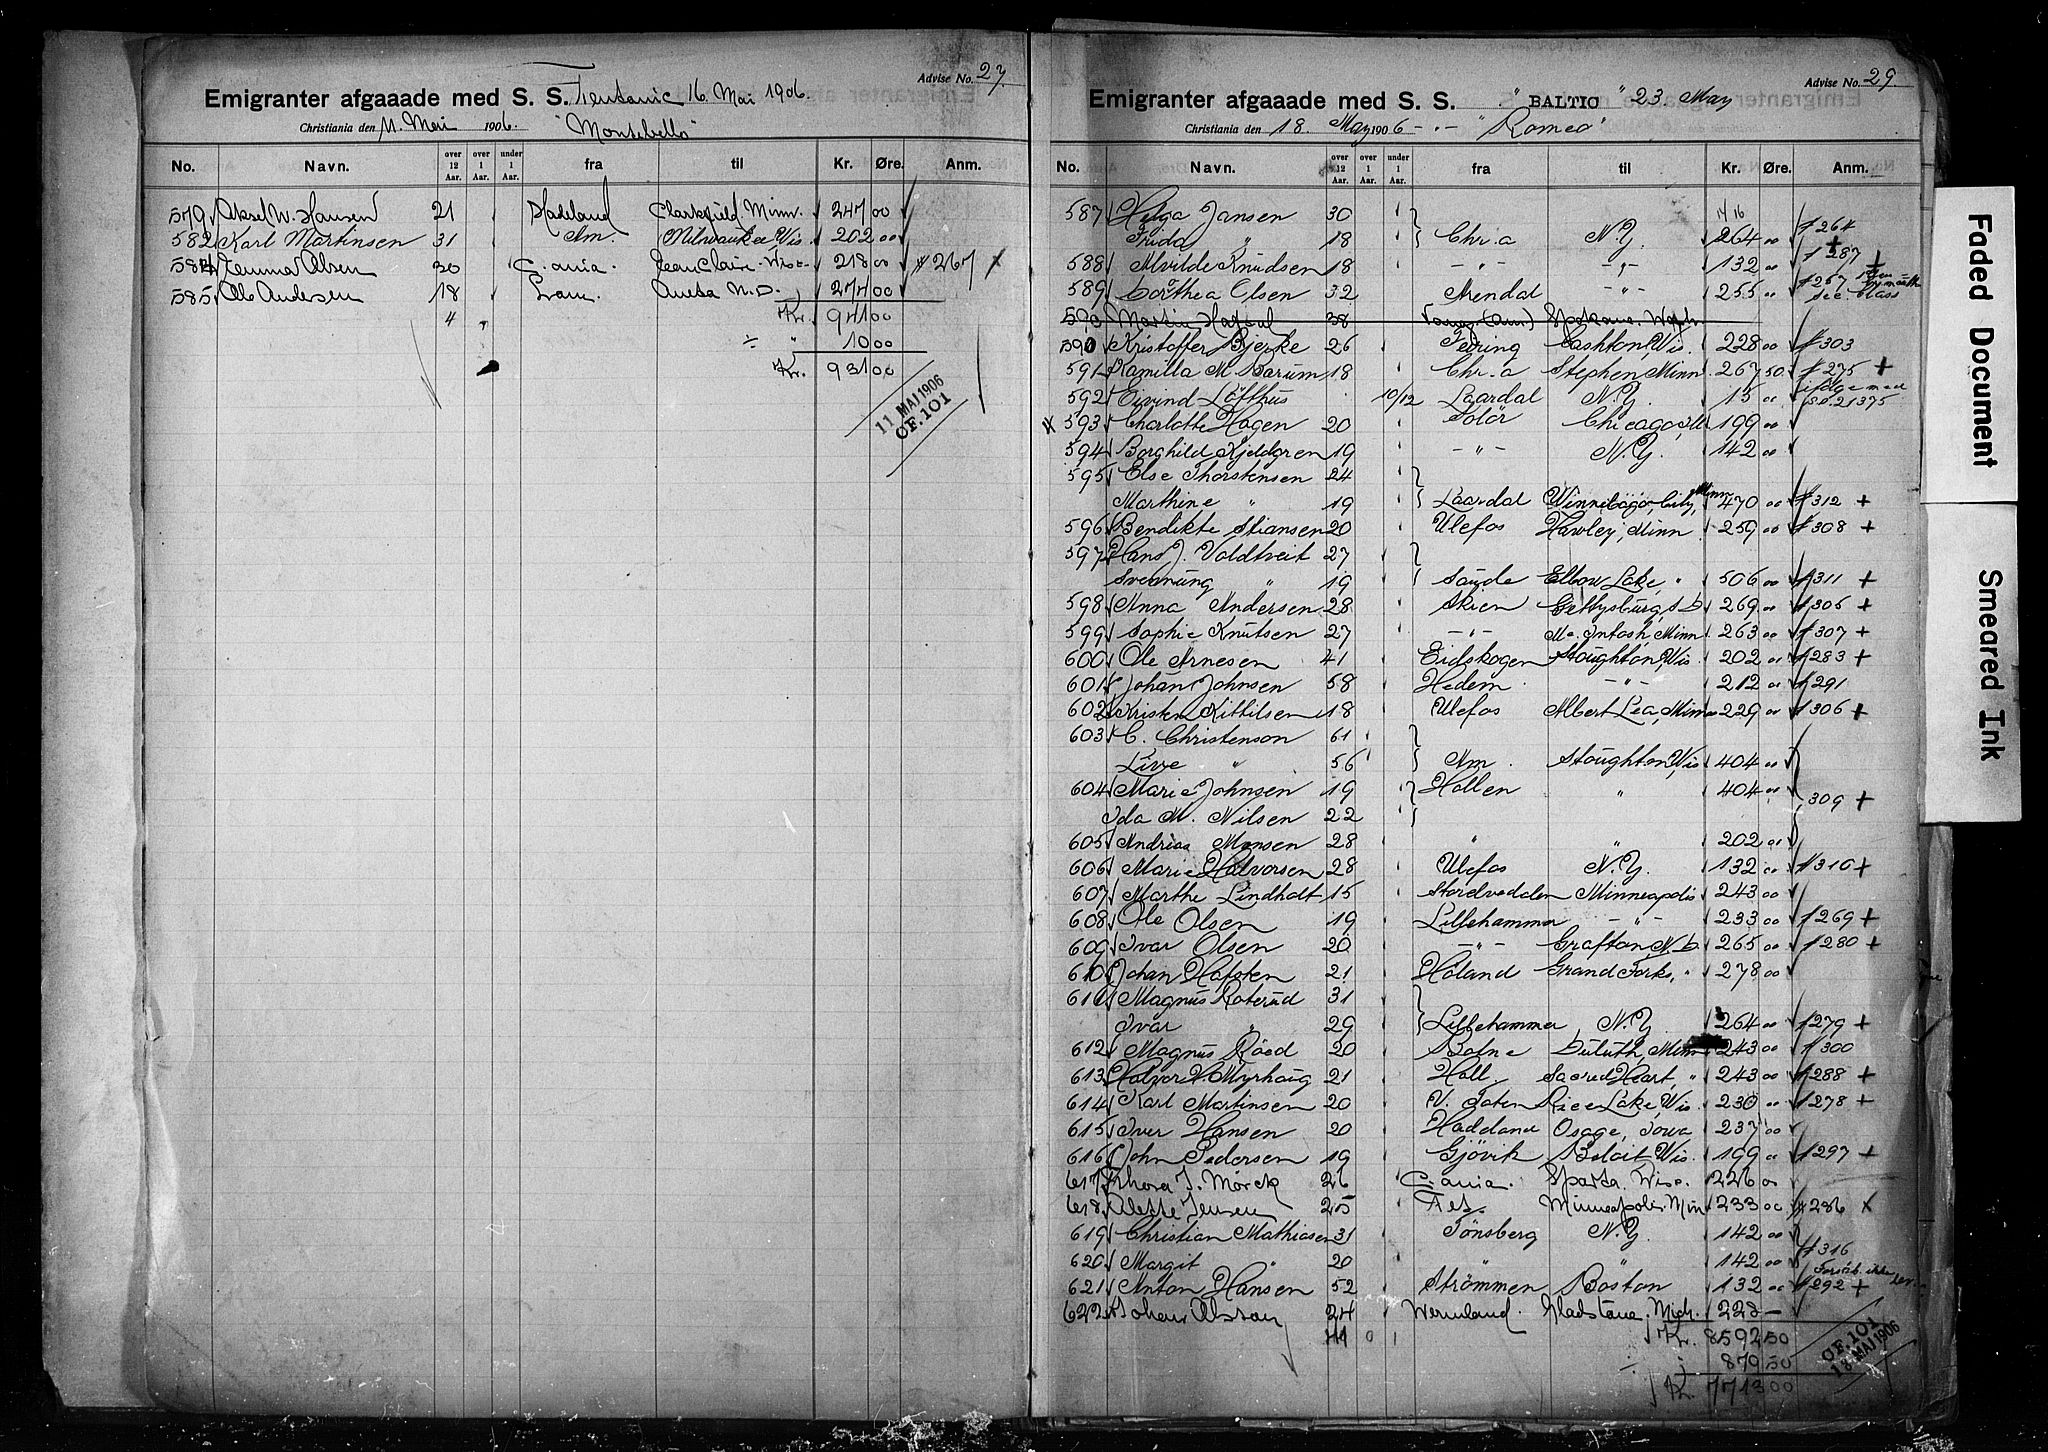 Advise No. 27.
Emigranter afgaaade med S. S. Teutonic 16. Mai 1906.
Christiania den 11. Mai 1906. "Montebello"
No. Navn. over 12 Aar. over 1 Aar. under 1 Aar. fra til Kr. Øre. Anm.
579 Aksel W. Hansen 21 Hadeland Clarkfield. Minn. 247 00
582 Karl Martinsen 31 Am. Milwaukee, Wis. 202 00
584 Emma Olsen 30 C.ania. Eau Claire. Wisc. 218 00 # 267 x
585 Ole Andersen 18 Gran. Aneta N.D. 274 00
4 Kr. 941 00
÷ " 10 00
Kr. 931 00
11 MAI 1906
OF. 101
Advise No. 29.
Emigranter afgaaade med S. S. "BALTIC" 23. May
Christiania den 18. May 1906 -"- "Romeo"
No. Navn. over 12 Aar. over 1 Aar. under 1 Aar. fra til Kr. Øre. Anm.
587 Helga Jansen 30
Frida " 18 Chr.a N.Y. 264 00 # 264 +
588 Mvilde Knudsen 18 -"- -"- 132 00 # 287 +
589 Dorthea Olsen 32 Arendal -"- 255 " # 267 sec. class
590 Martin 38 Spokane. Wash.
590 Kristoffer Bjerke 26 Cashton, Wis. 228 00 # 303
591 Kamilla M. Barum 18 Chr.a Stephen, Minn 267 50 # 275 +
592 Eivind Løfthus 10/12 Laardal N.Y. 15 00 ifølge med S.O. 21375
# 593 Charlotte Hagen 20 Solør Chicago, Ill 199 00
594 Borghild Kjeldgren 19 -"- N.Y. 142 00
595 Else Thorstensen 24
Marthine " 19 Laardal Winnebago City, Minn 470 00 # 312 +
596 Bendikte Stiansen 20 Ulefos Hawley, Minn. 259 00 # 308 +
597 Hans J. Voldtveit 27
Svenung " 19 Saude Elbow Lake, " 506 00 # 311 +
598 Anna Andersen 28 Skien Gettysburg, S.D. 269 00 # 305 +
599 Sophie Knutsen 27 -"- Mc. Intosh, Minn 263 00 # 307 +
600 Ole Arnesen 41 Eidskogen Stoughton, Wis. 202 00 # 283 +
601 Johan Johnsen 58 Hedem. -"- 212 00 # 291
602 Kristen Kittilsen 18 Ulefos Albert Lea, Minn 229 00 # 306 +
603 C. Christenson 61
Live " 56 Am. Stoughton, Wis 404 00
604 Marie Johnsen 19 Hollen " 404 00 309 +
Ida M. Nilsen 22
605 Andrias Monsen 28 " " 202 00
606 Marie Halvorsen 28 Ulefos N.Y. 132 00 # 310 +
607 Marthe Lindholt 15 Minneapolis 243 00
608 Ole Olsen 19 Lillehammer -"- 233 00 # 269 +
609 Ivar Olsen 20 -"- Grafton, N.D. 265 00 # 280 +
610 Johan Hafsten 21 Høland Grand Forks, " 278 00
611 Magnus Roterud 31
Ivar " 29 Lillehammer N.Y. 264 00 # 279 +
612 Magnus Röed 20 Botne Duluth, Minn 243 00 # 300
613 Halvor N. Myrhaug 21 Holl Sacred Heart, " 243 00 # 288 +
614 Karl Martinsen 20 V. Toten Rice Lake, Wis. 230 00 # 278 +
615 Iver Hansen 20 Hadeland Osage, Iowa 237 00
616 John Pedersen 19 Gjövik Beloit, Wis. 199 00 # 297 +
617 Thora J. Mörck 26 C.ania. Sparta. Wisc. 226 00
618 Alette Jensen 25 Fet. Minneapolis. Minn 233 00 # 286 x
619 Christian Mathiasen 31 Tönsberg N.Y. 142 00
620 Margit " 20 " " 142 00 # 316
621 Anton Hansen 52 Strömmen Boston 132 00 # 292 +
622 Johan Olsson 24 Wermland. Gladstone. Mich. 228 –
44 0 1 Kr. 8592 50
÷ " 879 50
Kr. 7713 00
OF. 101
18 MAI 1906
Faded Document
Smeared Ink